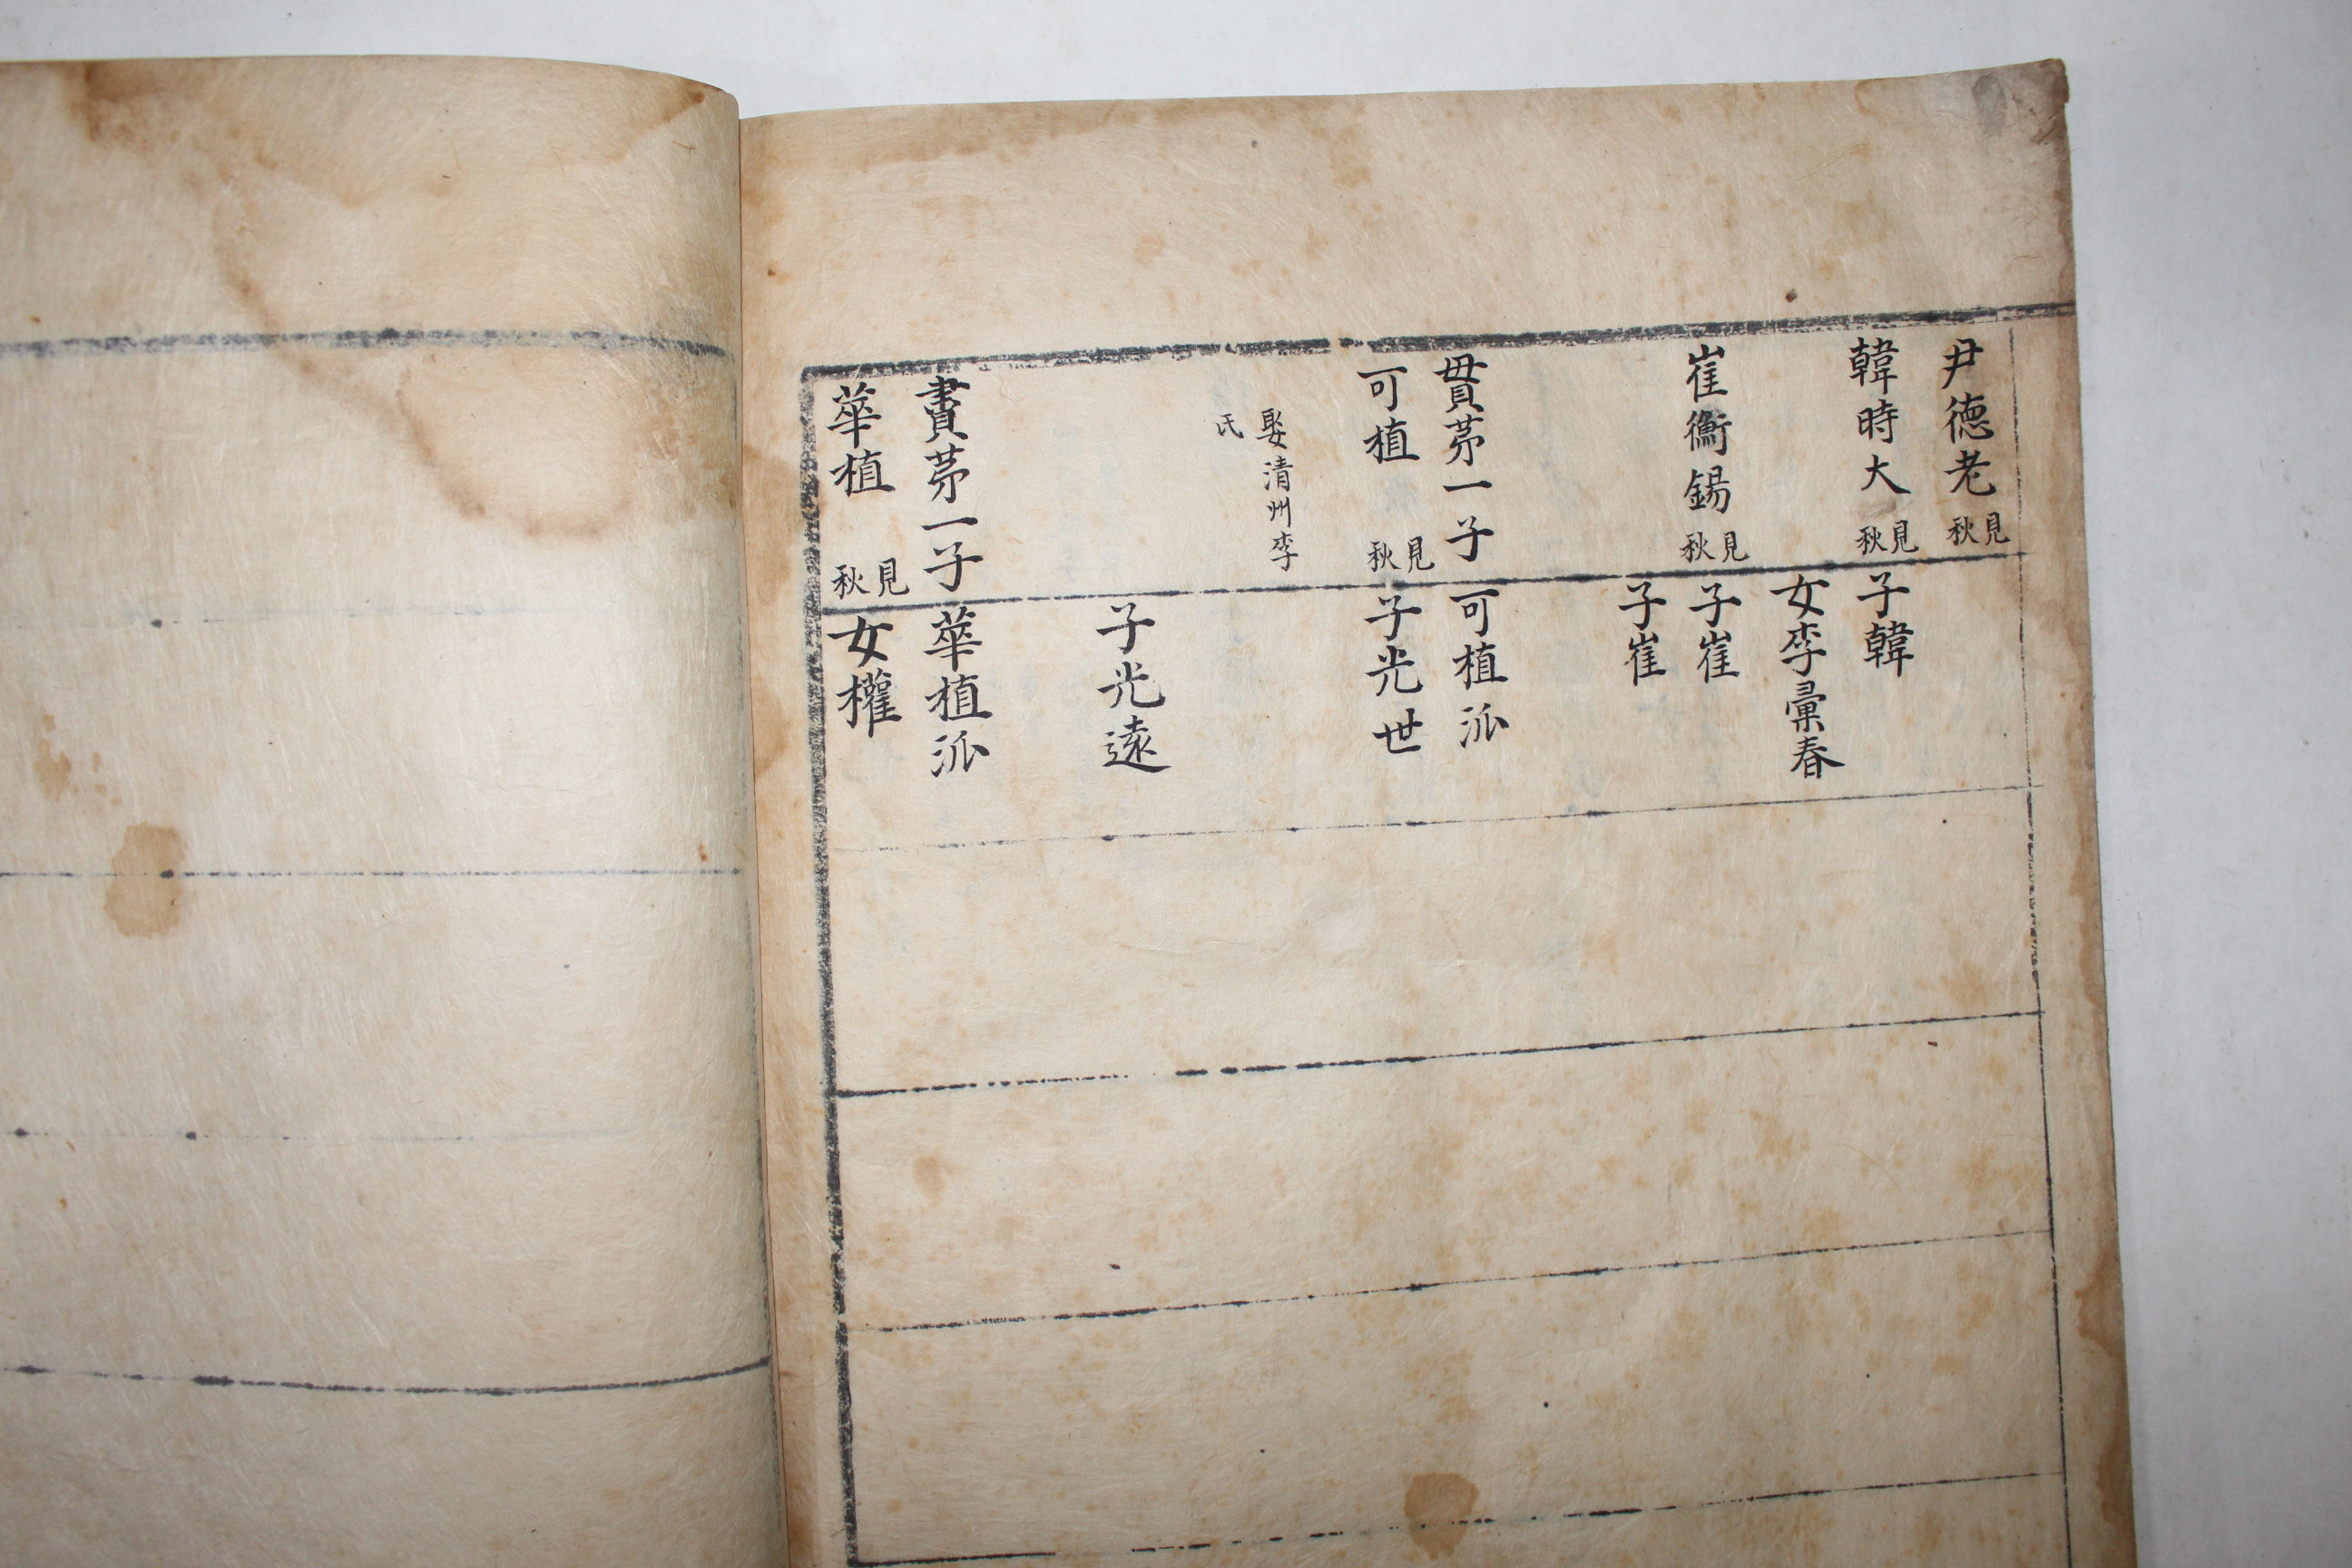 尹德老 見秋
韓時大 見秋
崔衡錫 見秋
貫苐一子
可植 見秋
娶清州李
氏
賮苐一子
華植 見秋
子韓
女李彙春
子崔
子崔
可植派
子光世
子光遠
華植派
女權